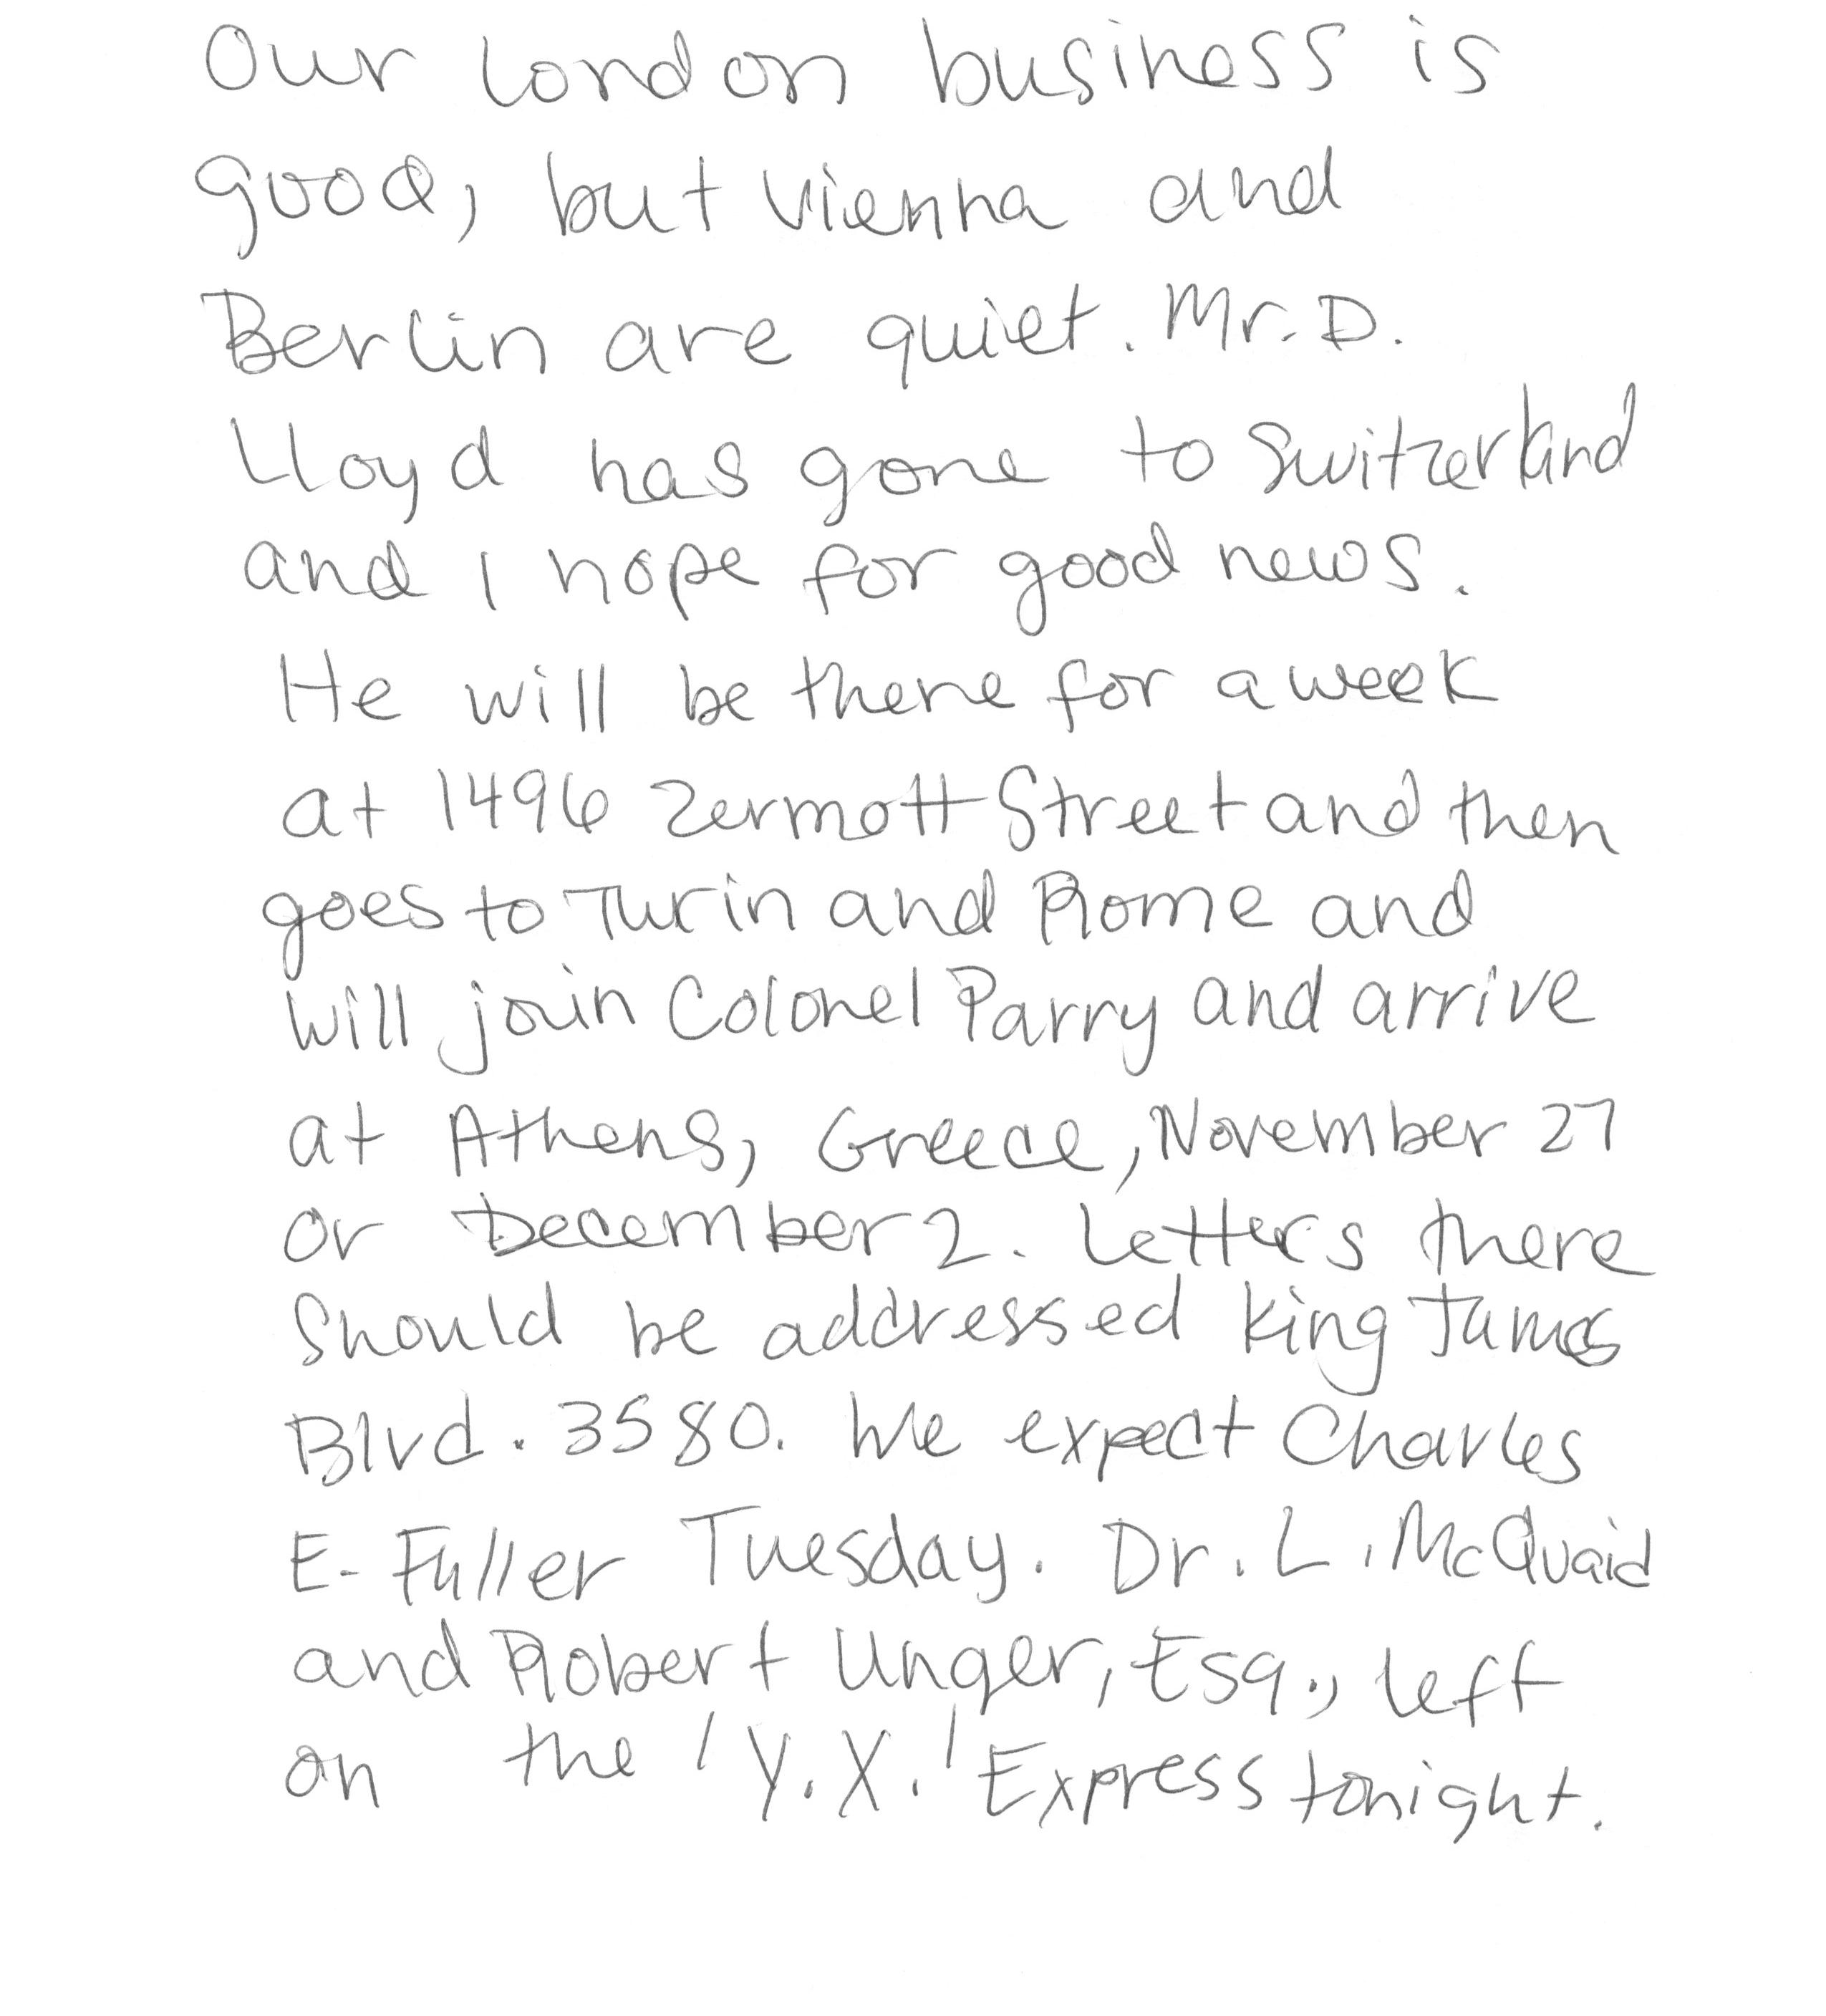 Our London business is
good, but Vienna and
Berlin are quiet. Mr. D.
Lloyd has gone to Switzerland
and I hope for good news.
He will be there for a week
at 1496 Zermott Street and then
goes to Turin and Rome and
will join Colonel Parry and arrive
at Athens, Greece, November 27
or December 2. Letters there
should be addressed King James
Blvd. 3580. We expect Charles
E. Fuller Tuesday. Dr. L. McQuaid
and Robert Unger, Esq., left
on the 'Y.X.' Express tonight.